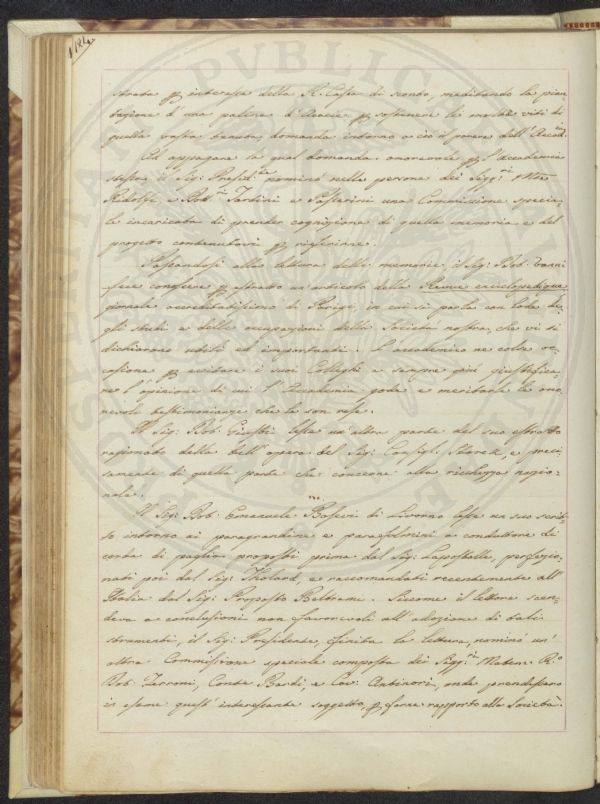 PROSPERITATI PVBLICAE AVGENDAE
184
strata p interesse della R. Cassa di sconto, meditando la pian-
tagione d'una palina d'Acacie p sostenere le molte viti di
quella vasta tenuta, domanda intorno a ciò il parere dell'Accad.
Ad appagare la qual domanda onorevole p l'Accademia
stessa, il Sig: Presid.te nominò nelle persone dei Sigg:ri
Ridolfi, e Dott.ri Tartini e Passerini una Commissione specia-
le incaricata di prender cognizione di quella memoria, e del
progetto contenutovi p riferirne.
Passandosi alla lettura delle memorie il Sig: Dott:
fece conoscere p estratto un articolo della Revue enciclopedique
giornale accreditatissimo di Parigi, in cui si parla con lode de-
gli studi e delle occupazioni della Società nostra, che vi si
dichiarano utili ed importanti. L'accademico ne colse oc-
casione p eccitare i suoi Colleghi a sempre più giustifica-
re l'opinione di cui l'Accademia gode e meritarle le ono-
revole testimonianze che le son rese.
Il Sig: Dott: Giusti lesse un'altra parte del suo estratto
ragionato della bell'opera del Sig: Consigl: Storck, e preci-
samente di quella parte che concerne alla ricchezza nazio-
nale.
Il Sig: Dott: Emanuele Basevi di Livorno lesse un suo scrit-
to intorno ai paragrandine e parafulmini a conduttore di
corda di paglia proposti prima dal Sig: Lapostolle, perfezio-
nati poi dal Sig: Tholard, e raccomandati recentemente all'
Italia dal Sig: Proposto Beltrami. Siccome il lettore scen-
deva a conclusioni non favorevoli all'adozione di tali
strumenti, il Sig: Presidente, finita la lettura, nominò un'
altra Commissione speciale composta dei Sigg:ri Matem: R.o
Dott: Ferroni, Conte Bardi, e Cav: Antinori, onde prendessero
in esame quest'interessante soggetto, p farne rapporto alla Società.